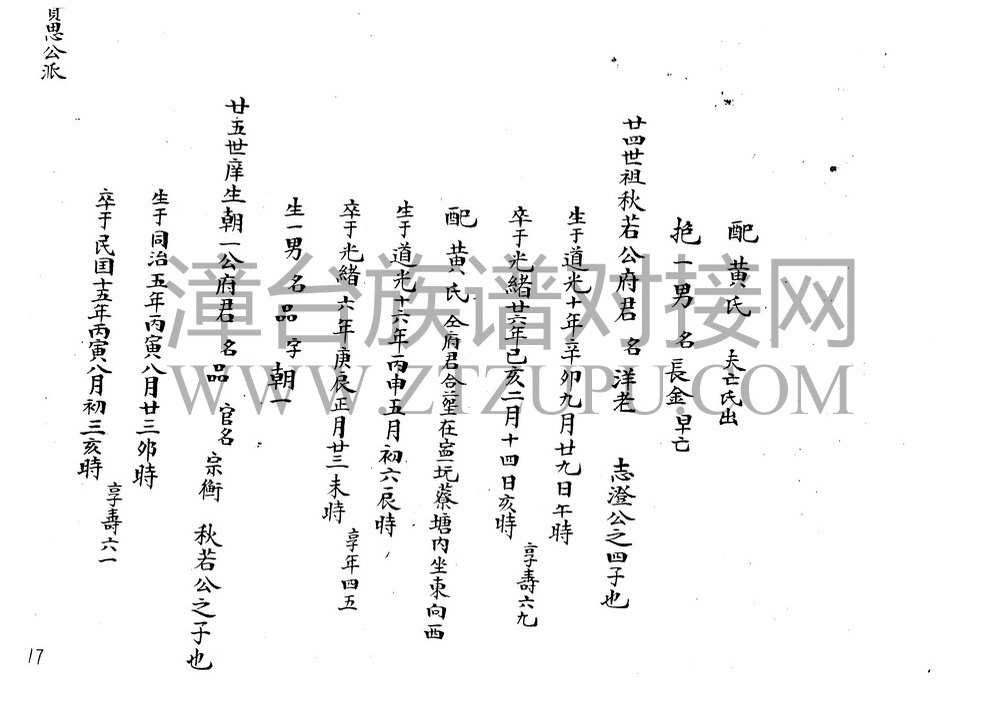 配黄氏 夫亡氏出
抱一男 名長金早亡
廿四世祖秋若公府君 名洋老 志澄公之四子也
生于道光十年辛卯九月廿九日午時
卒于光緒廿六年己亥二月十四日亥時 享壽六九
配黄氏 仝府君合茔在 坑蔡塘内坐東向西
生于道光十六年丙申五月初六辰時
卒于光緒六年庚辰正月廿三未時 享年四五
生一男 名品字朝一
廿五世庠生朝一公府君 名品 官名宗衡 秋若公之子也
生于同治五年丙寅八月廿三卯時
卒于民国十五年丙寅八月初三亥時 享壽六一
思公派
17
漳台族谱对接网
WWW.ZTZUPU.COM